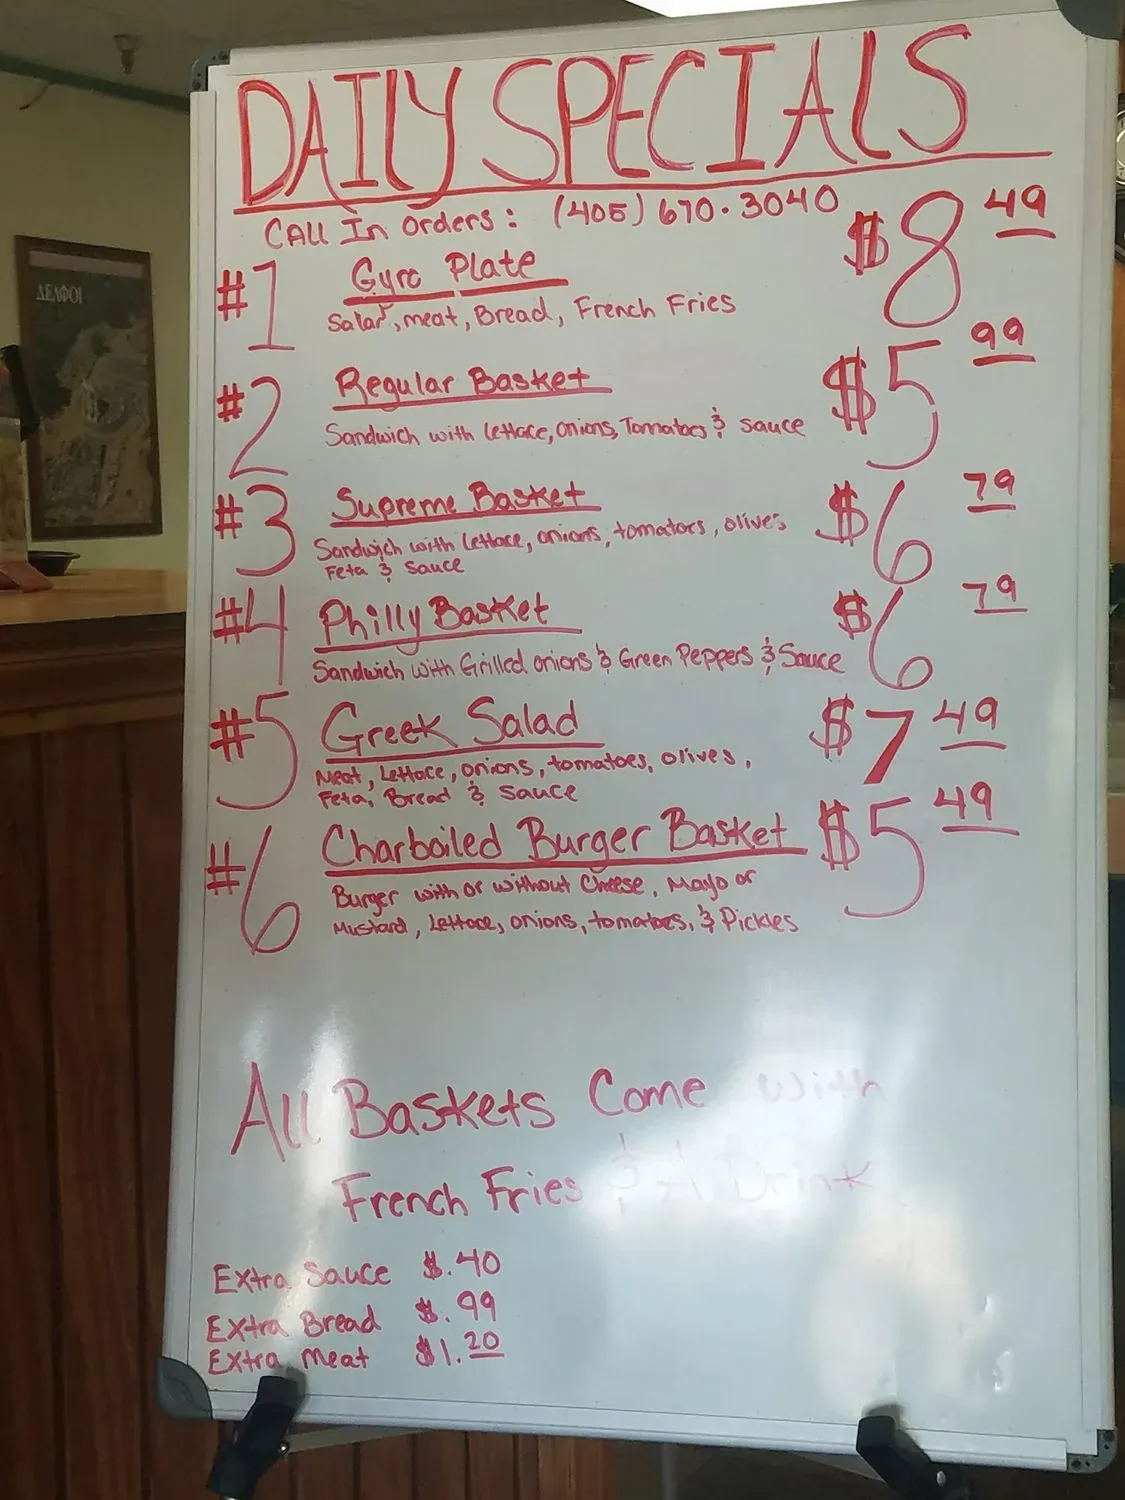 DAILY SPECIALS
CAll In Orders: (405) 670-3040
#1 Gyro Plate $8.49
Salad, meat, Bread, French Fries
#2 Regular Basket $5.99
Sandwich with Lettace, onions, Tomatoes & sauce
#3 Supreme Basket $6.79
Sandwich with Lettace, onions, tomatoes, olives
Feta & sauce
#4 Philly Basket $6.79
Sandwich with Grilled onions & Green Peppers & Sauce
#5 Greek Salad $7.49
Meat, Lettace, onions, tomatoes, olives,
Feta, Bread & sauce
#6 Charboiled Burger Basket $5.49
Burger with or without Cheese, Mayo or
Mustard, Lettace, onions, tomatoes, & Pickles
All Baskets Come with
French Fries & A Drink
Extra Sauce $.40
Extra Bread $.99
Extra Meat $1.20
ΔΕΛΦΟΙ